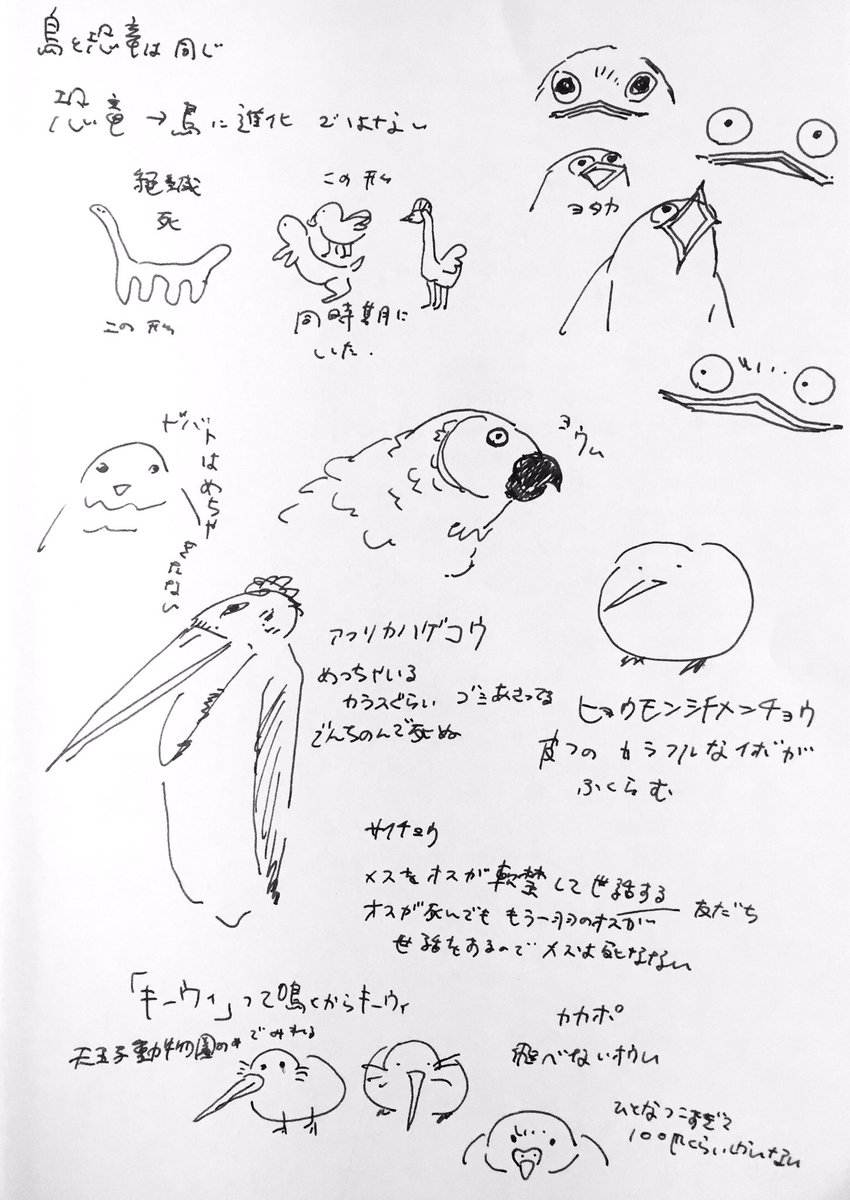 鳥と恐竜は同じ
恐竜→鳥に進化 ではない
絶滅
死
この形
この形
同時期に
いた.
ヨタカ
ドバトはめちゃ
きたない
ヨウム
アフリカハゲコウ
めっちゃいる
カラスぐらい ゴミあさってる
でんちのんで死ぬ
ヒョウモンシチメンチョウ
皮フのカラフルなイボが
ふくらむ
サイチョウ
メスをオスが軟禁して世話する
オスが死んでも もう一羽のオスが 友だち
世話をするのでメスは死なない
「キーウィ」って鳴くからキーウィ
天王寺動物園のみでみれる
カカポ
飛べないオウム
ひとなつこすぎて
100円くらいしかいない